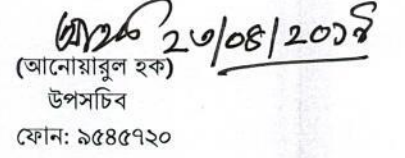 ২৩/০৪/২০১৪
(আনোয়ারুল হক)
উপসচিব
ফোন: ৯৫৪৫৭২০